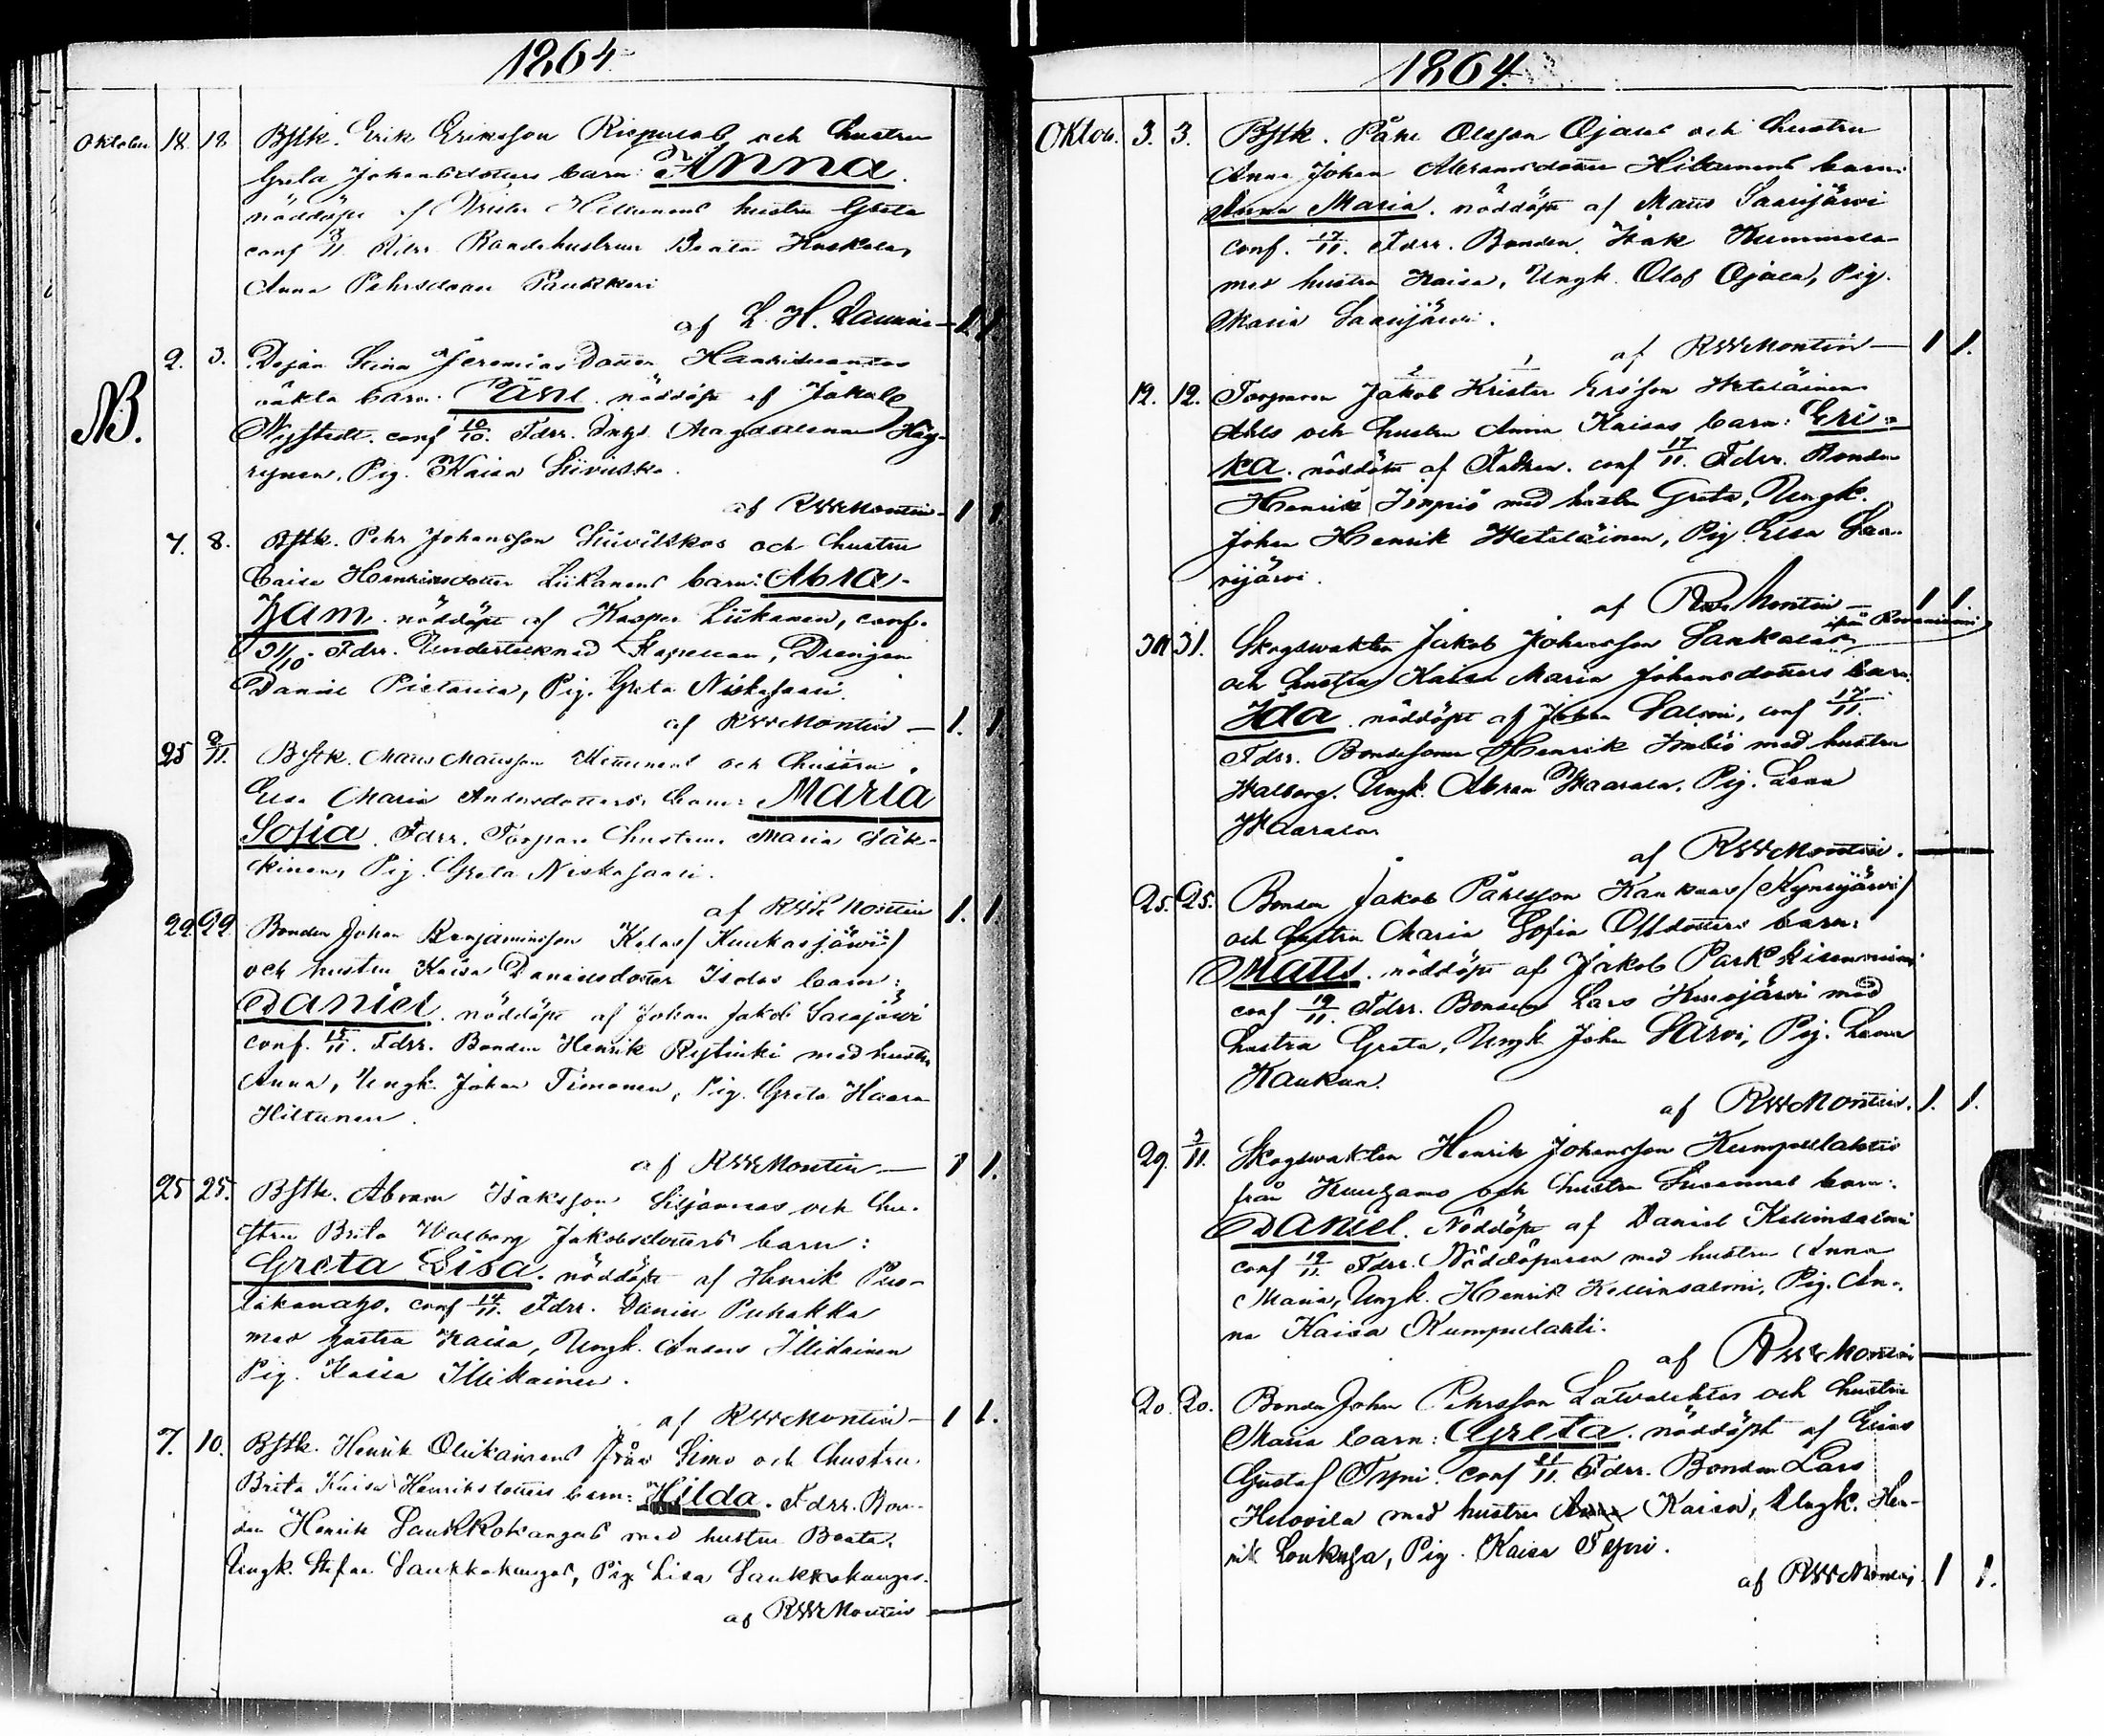 1864
Oktober 18. 18 Bstk. Erik Eriksson och hustru
Greta Johansdotters barn: Anna.
nöddöpt af Krister Hiltunens hustru Greta
conf /11. Fdrr. Bondehustrun Beata Koskela,
Anna Pehrsdotter Paukkeri
af L. H. Laurin — 1 1
NB.
2. 3. Dejan Stina Jeremias Dotter
oäkta barn: nöddöpt af Jakob
Nystedt. conf 10/10. Fdrr. Magdalena Häy-
rynen, Pig. Kaisa Siivuska.
af RWMontin — 1 1
7. 8. Bstk. Pehr Johansson och hustru
Caisa Henriksdotter Liikanens barn: Abra-
ham. nöddöpt af Kasper Liikanen, conf.
31/10. Fdrr. Undertecknad Kapellan, Drengen
Daniel Pietarila, Pig. Greta Niskasaari.
af RWMontin — 1. 1.
25 2/11. Bstk. Matts Mattsson och hustru
Elsa Maria Andersdotters barn: Maria
Sofia. Fdrr. Torpare hustrun Maria Säk-
kinen, Pig. Greta Niskasaari.
af RWMontin 1. 1.
22. 22. Bonden Johan Benjaminsson Kelas / Kuukasjärvi /
och hustru Kaisa Danielsdotter barn:
Daniel. nöddöpt af Johan Jakob
conf. 15/11. Fdrr. Bonden Henrik Rytinki med hustru
Anna, Ungk. Johan Timonen, Pig. Greta
Hiltunen.
af RWMontin — 1 1.
25 25. Bstk. Abram Isaksson och hu-
stru Brita Walborg Jakobsdotters barn:
Greta Lisa. nöddöpt af Henrik Puo-
lakanaho. conf 14/11. Fdrr. Daniel Puhakka
med hustru Kaisa, Ungk. Anders Illikainen
Pig. Kaisa Illikainen.
af RWMontin — 1 1.
7. 10. Bstk. Henrik Olikainens från Simo och hustru
Brita Kaisa Henriksdotters barn: Hilda. Fdrr. Bon-
den Henrik Saukkokangas med hustru Beata,
Ungk. Stefan Saukkokangas, Pig. Lisa Saukkokangas.
af RWMontin —
1864.
Oktob. 3. 3. Bstk. Påhl Olsson Ojalas och hustru
Anna Johan Abramsdotter Hiltunens barn:
Anna Maria. nöddöpt af Matts Saarijärvi
conf. 17/11. Fdrr. Bonden Isak Kummala
med hustru Kaisa, Ungk. Olof Ojala, Pig.
Maria Saarijärvi.
af RWMontin — 1 1.
12. 12. Torparen Jakob Krister Ersson Heteläinen
Ahls och hustru Anna Kaisas barn: Eri-
ka. nöddöpt af Fadren. conf 17/11. Fdrr. Bonden
Henrik Impiö med hustru Greta, Ungk.
Johan Henrik Heteläinen, Pig. Elsa Saa-
rijärvi.
af RWMontin — 1 1.
30 31. Skogswakten Jakob Johansson Sankala ifrån Rovaniemi
och hustru Kaisa Maria Johansdotters barn
Ida. nöddöpt af Johan Salmi, conf 17/11.
Fdrr. Bondesonen Henrik Impiö med hustru
Walborg. Ungk. Abram Waarala. Pig. Lena
Waarala.
af RWMontin. —
25. 25. Bonden Jakob Påhlsson Kaukuas / Kynsijärvi /
och hustru Maria Sofia Olsdotters barn:
Matts. nöddöpt af Jakob Parkkisenniemi
conf 19/11. Fdrr. Bonden Lars Kurujärvi med
hustru Greta, Ungk. Johan Särvi, Pig. Lena
Kaukua.
af RWMontin. 1. 1.
29. 3/11. Skogswakten Henrik Johansson Kumpulahtis
från Kuusamo och hustru Susannas barn:
Daniel. Nöddöpt af Daniel Kellinsalmi
conf 19/11. Fdrr. Nöddöparen med hustru Anna
Maria, Ungk. Henrik Kellinsalmi, Pig. An-
na Kaisa Kumpulahti.
af RWMontin —
20. 20. Bonden Johan Pehrsson Latvalehtos och hustru
Maria barn: Greta. nöddöpt af Elias
Gustaf Typpi. conf 21/11. Fdrr. Bonden Lars
Hilovila med hustru Kaisa, Ungk. Hen-
rik Loukusa, Pig. Kaisa Typpi.
af RWMontin 1 1.